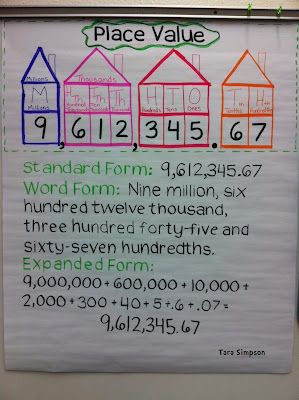 Place Value
Millions Thousands
M HTh TTh Th H T O T H
Millions Hundred Thousands Ten Thousands Thousands Hundreds Tens Ones Tenths Hundredths
9,612,345.67
Standard Form: 9,612,345.67
Word Form: Nine million, six
hundred twelve thousand,
three hundred forty-five and
sixty-seven hundredths.
Expanded Form:
9,000,000+600,000+10,000+
2,000+300+40+5+.6+.07=
9,612,345.67
Tara Simpson